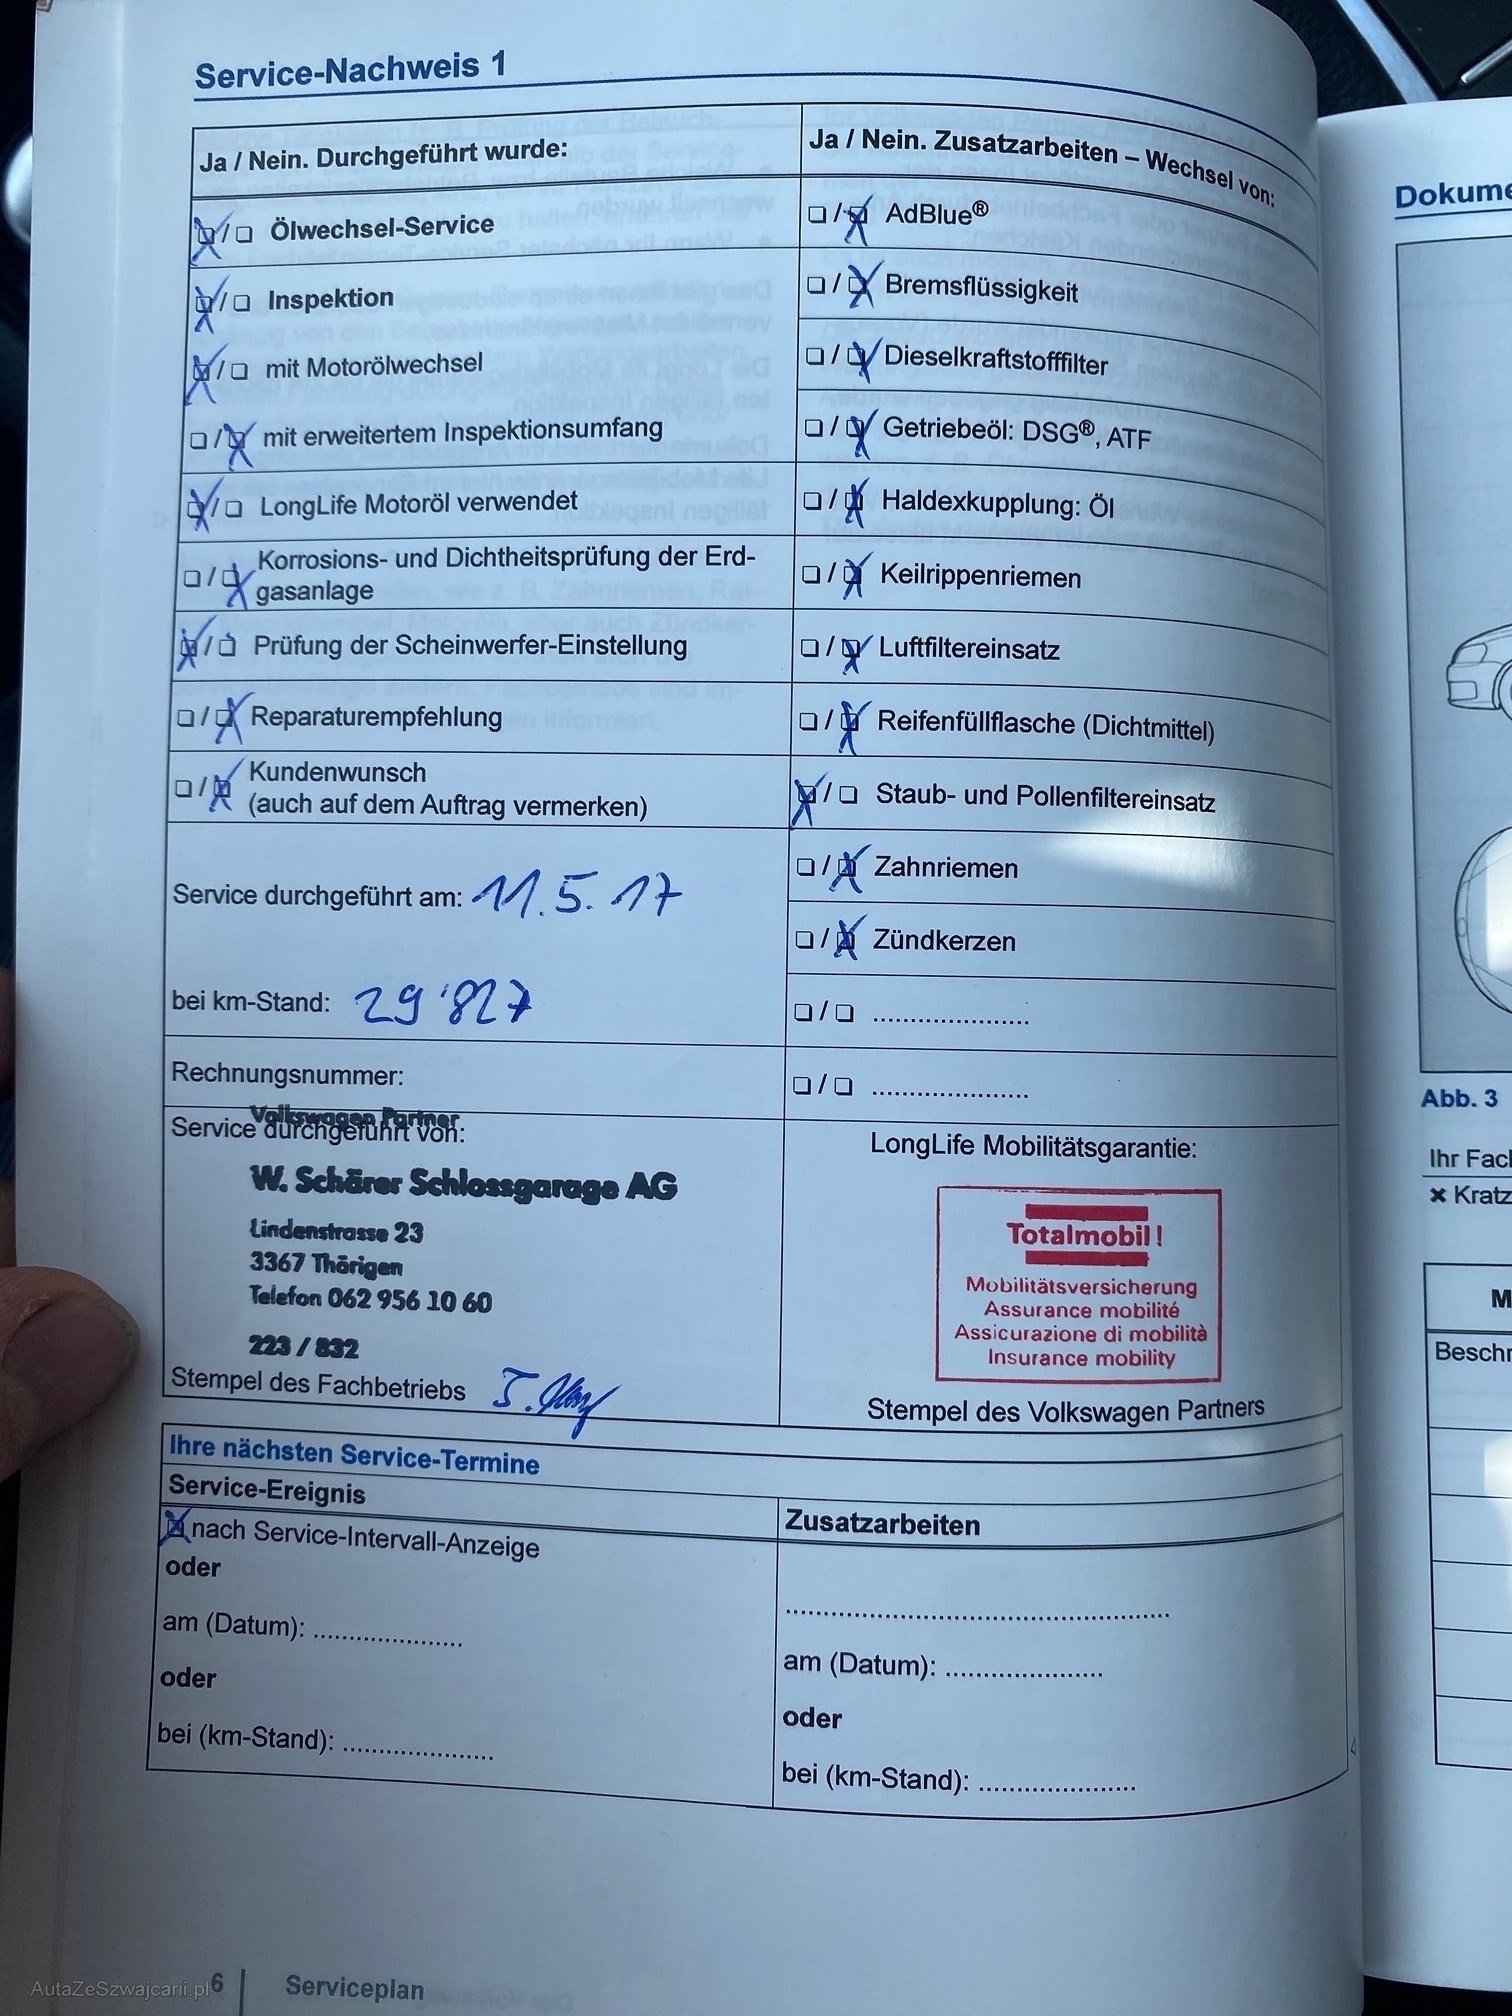 Service-Nachweis 1
Ja / Nein. Durchgeführt wurde:
Ölwechsel-Service
Inspektion
mit Motorölwechsel
mit erweitertem Inspektionsumfang
LongLife Motoröl verwendet
Korrosions- und Dichtheitsprüfung der Erd-
gasanlage
Prüfung der Scheinwerfer-Einstellung
Reparaturempfehlung
Kundenwunsch
(auch auf dem Auftrag vermerken)
Service durchgeführt am: 11.5.17
bei km-Stand: 29'827
Rechnungsnummer:
Volkswagen Partner
Service durchgeführt von:
W. Schärer Schlossgarage AG
Lindenstrasse 23
3367 Thörigen
Telefon 062 956 10 60
223 / 832
Stempel des Fachbetriebs
Ja / Nein. Zusatzarbeiten – Wechsel von:
AdBlue®
Bremsflüssigkeit
Dieselkraftstofffilter
Getriebeöl: DSG®, ATF
Haldexkupplung: Öl
Keilrippenriemen
Luftfiltereinsatz
Reifenfüllflasche (Dichtmittel)
Staub- und Pollenfiltereinsatz
Zahnriemen
Zündkerzen
LongLife Mobilitätsgarantie:
Totalmobil!
Mobilitätsversicherung
Assurance mobilité
Assicurazione di mobilità
Insurance mobility
Stempel des Volkswagen Partners
Ihre nächsten Service-Termine
Service-Ereignis
nach Service-Intervall-Anzeige
oder
am (Datum): ......................
oder
bei (km-Stand): ......................
Zusatzarbeiten
am (Datum): ......................
oder
bei (km-Stand): ......................
6 | Serviceplan
AutaZeSzwajcarii.pl
Dokume
Abb. 3
Ihr Fach
Kratz
M
Beschr